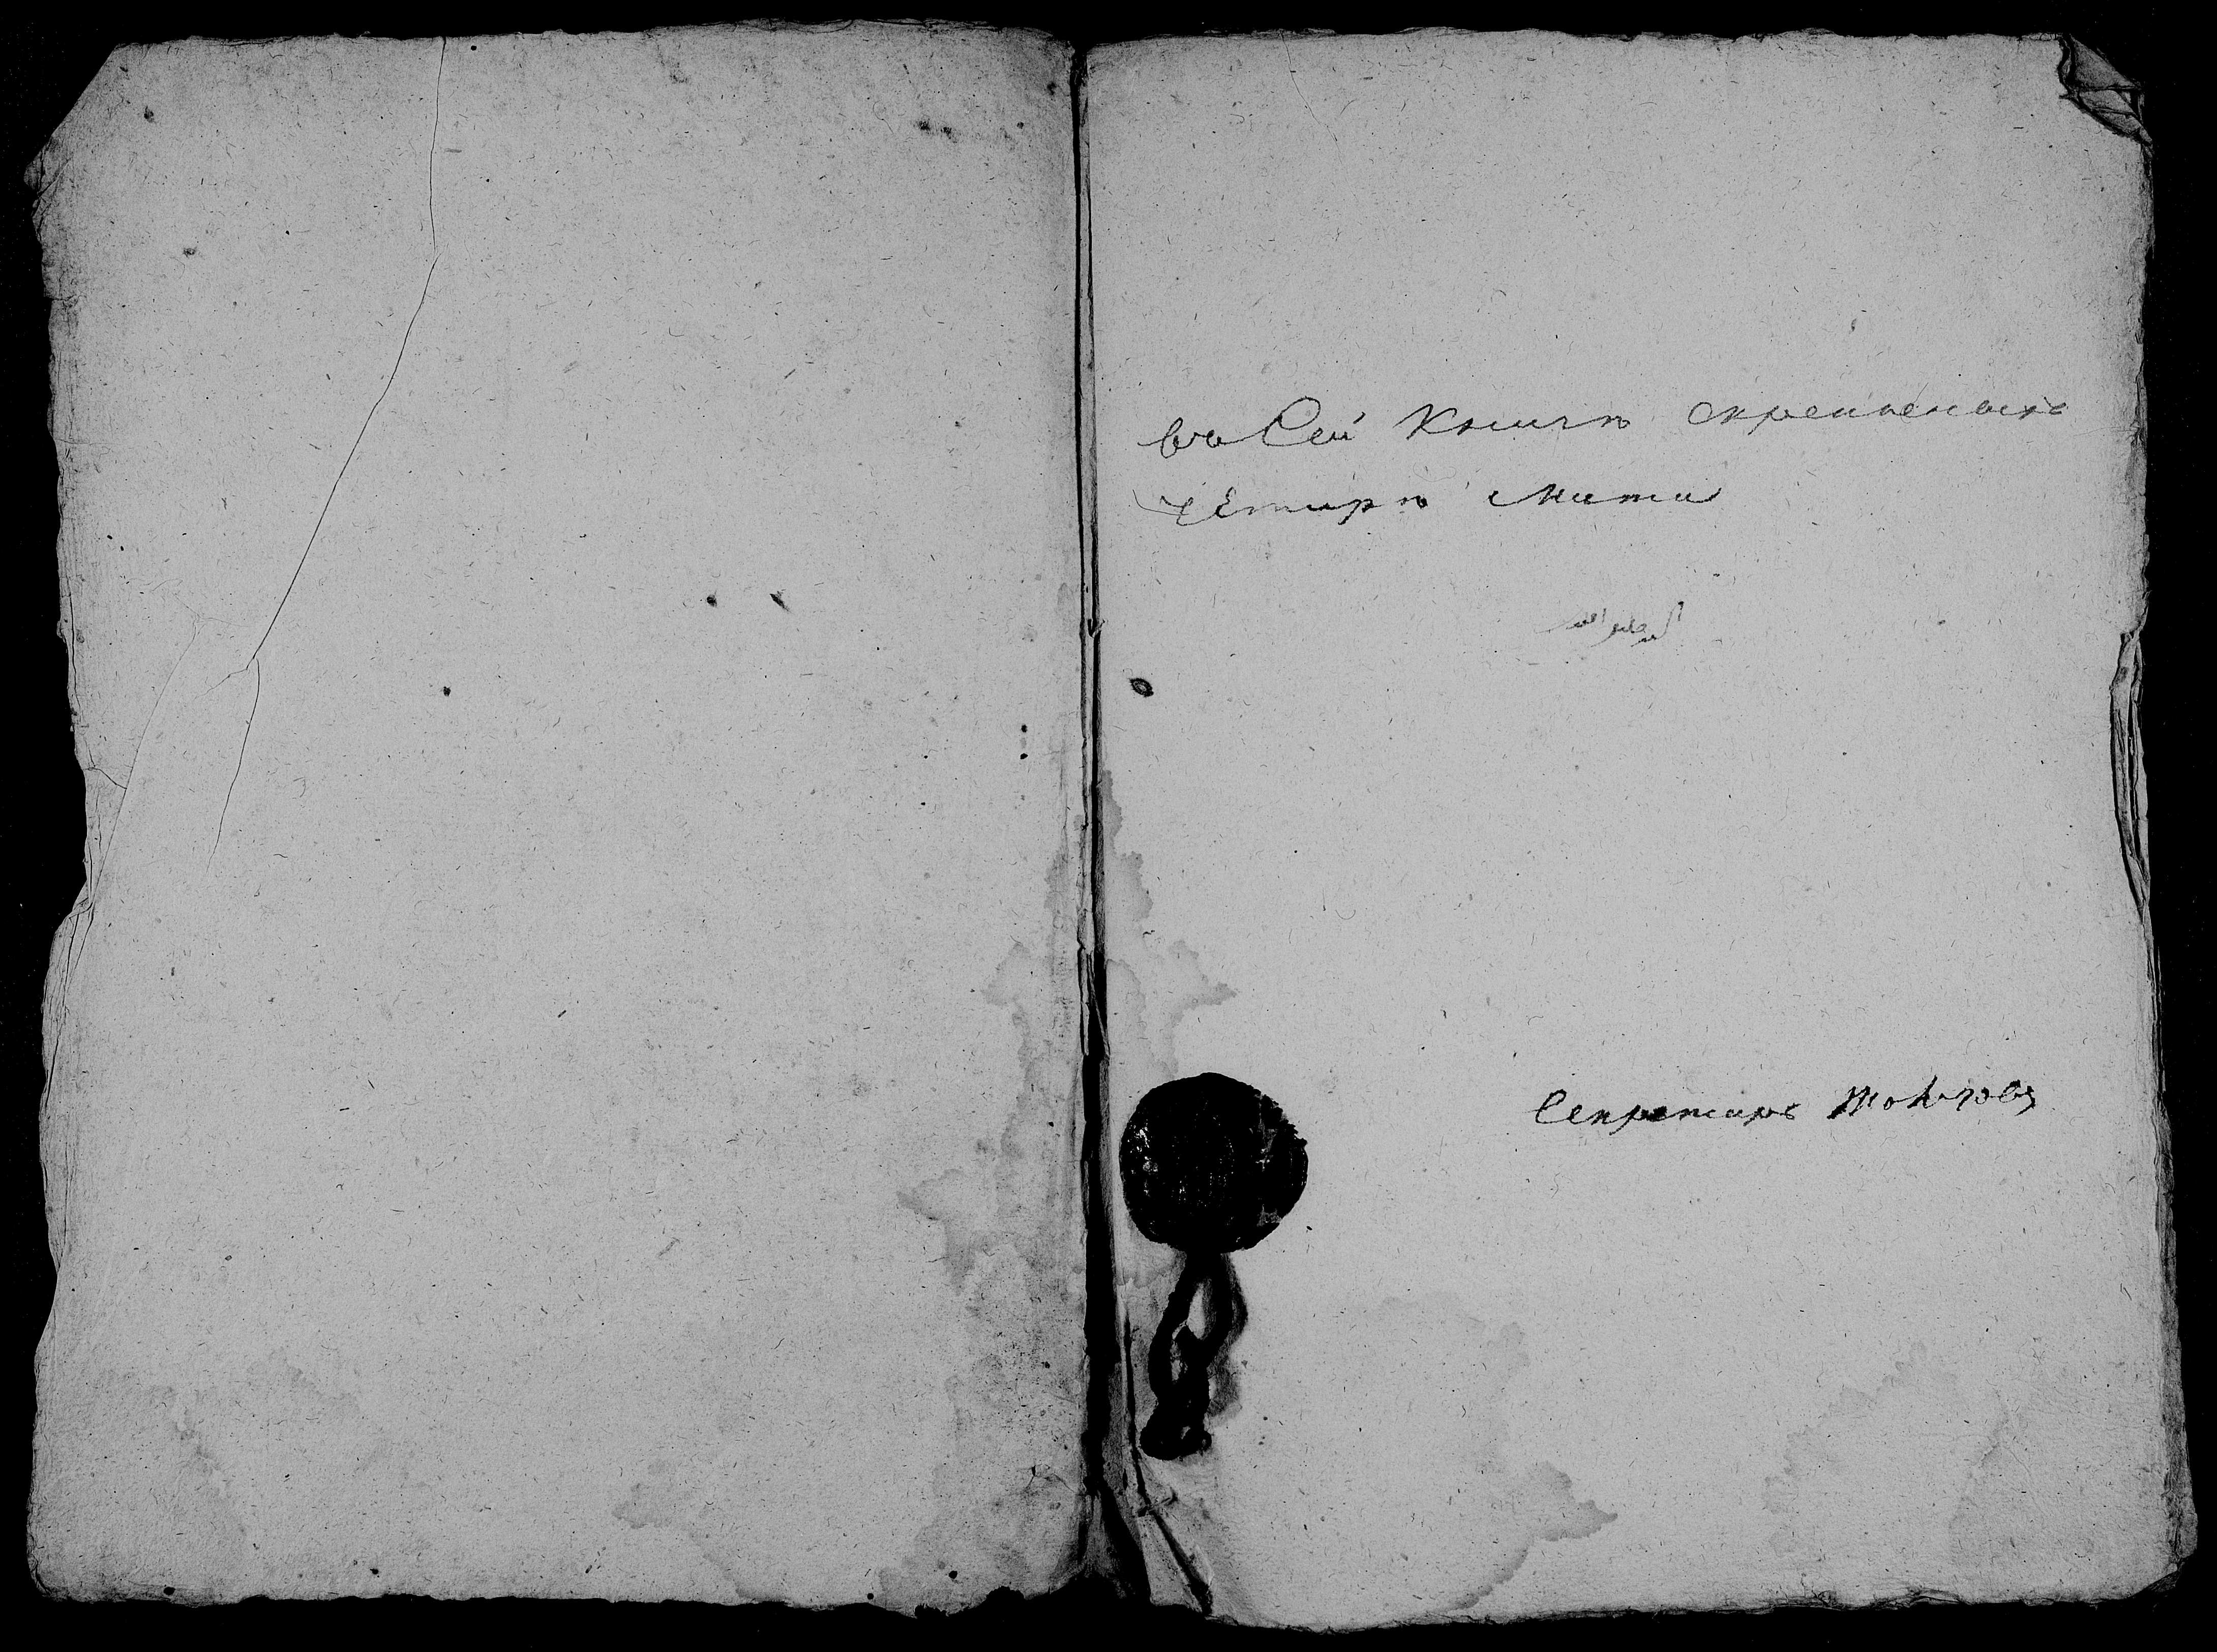 въ Сей Книгѣ скрепленыхъ
четирѣ листа
Секретарь